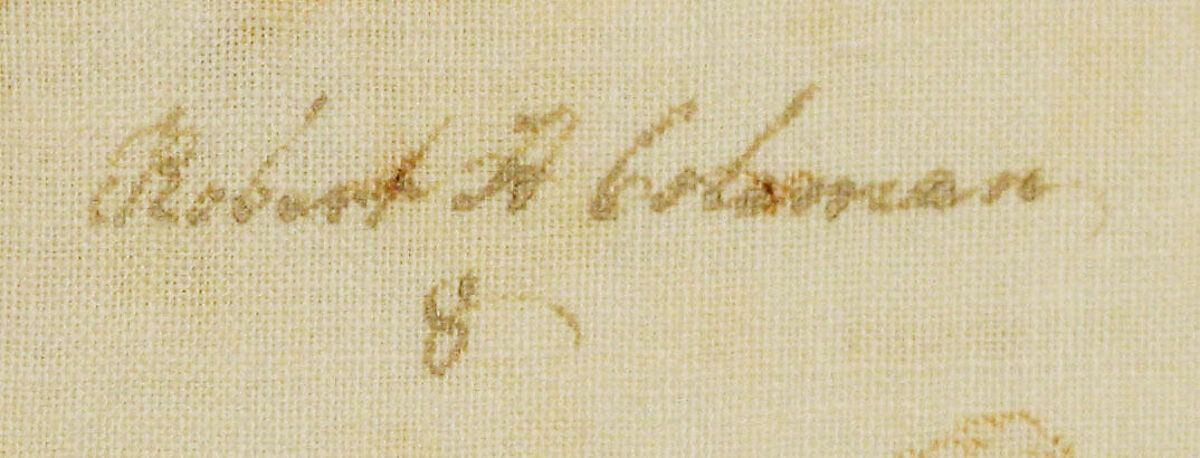 Robert H Coleman
8